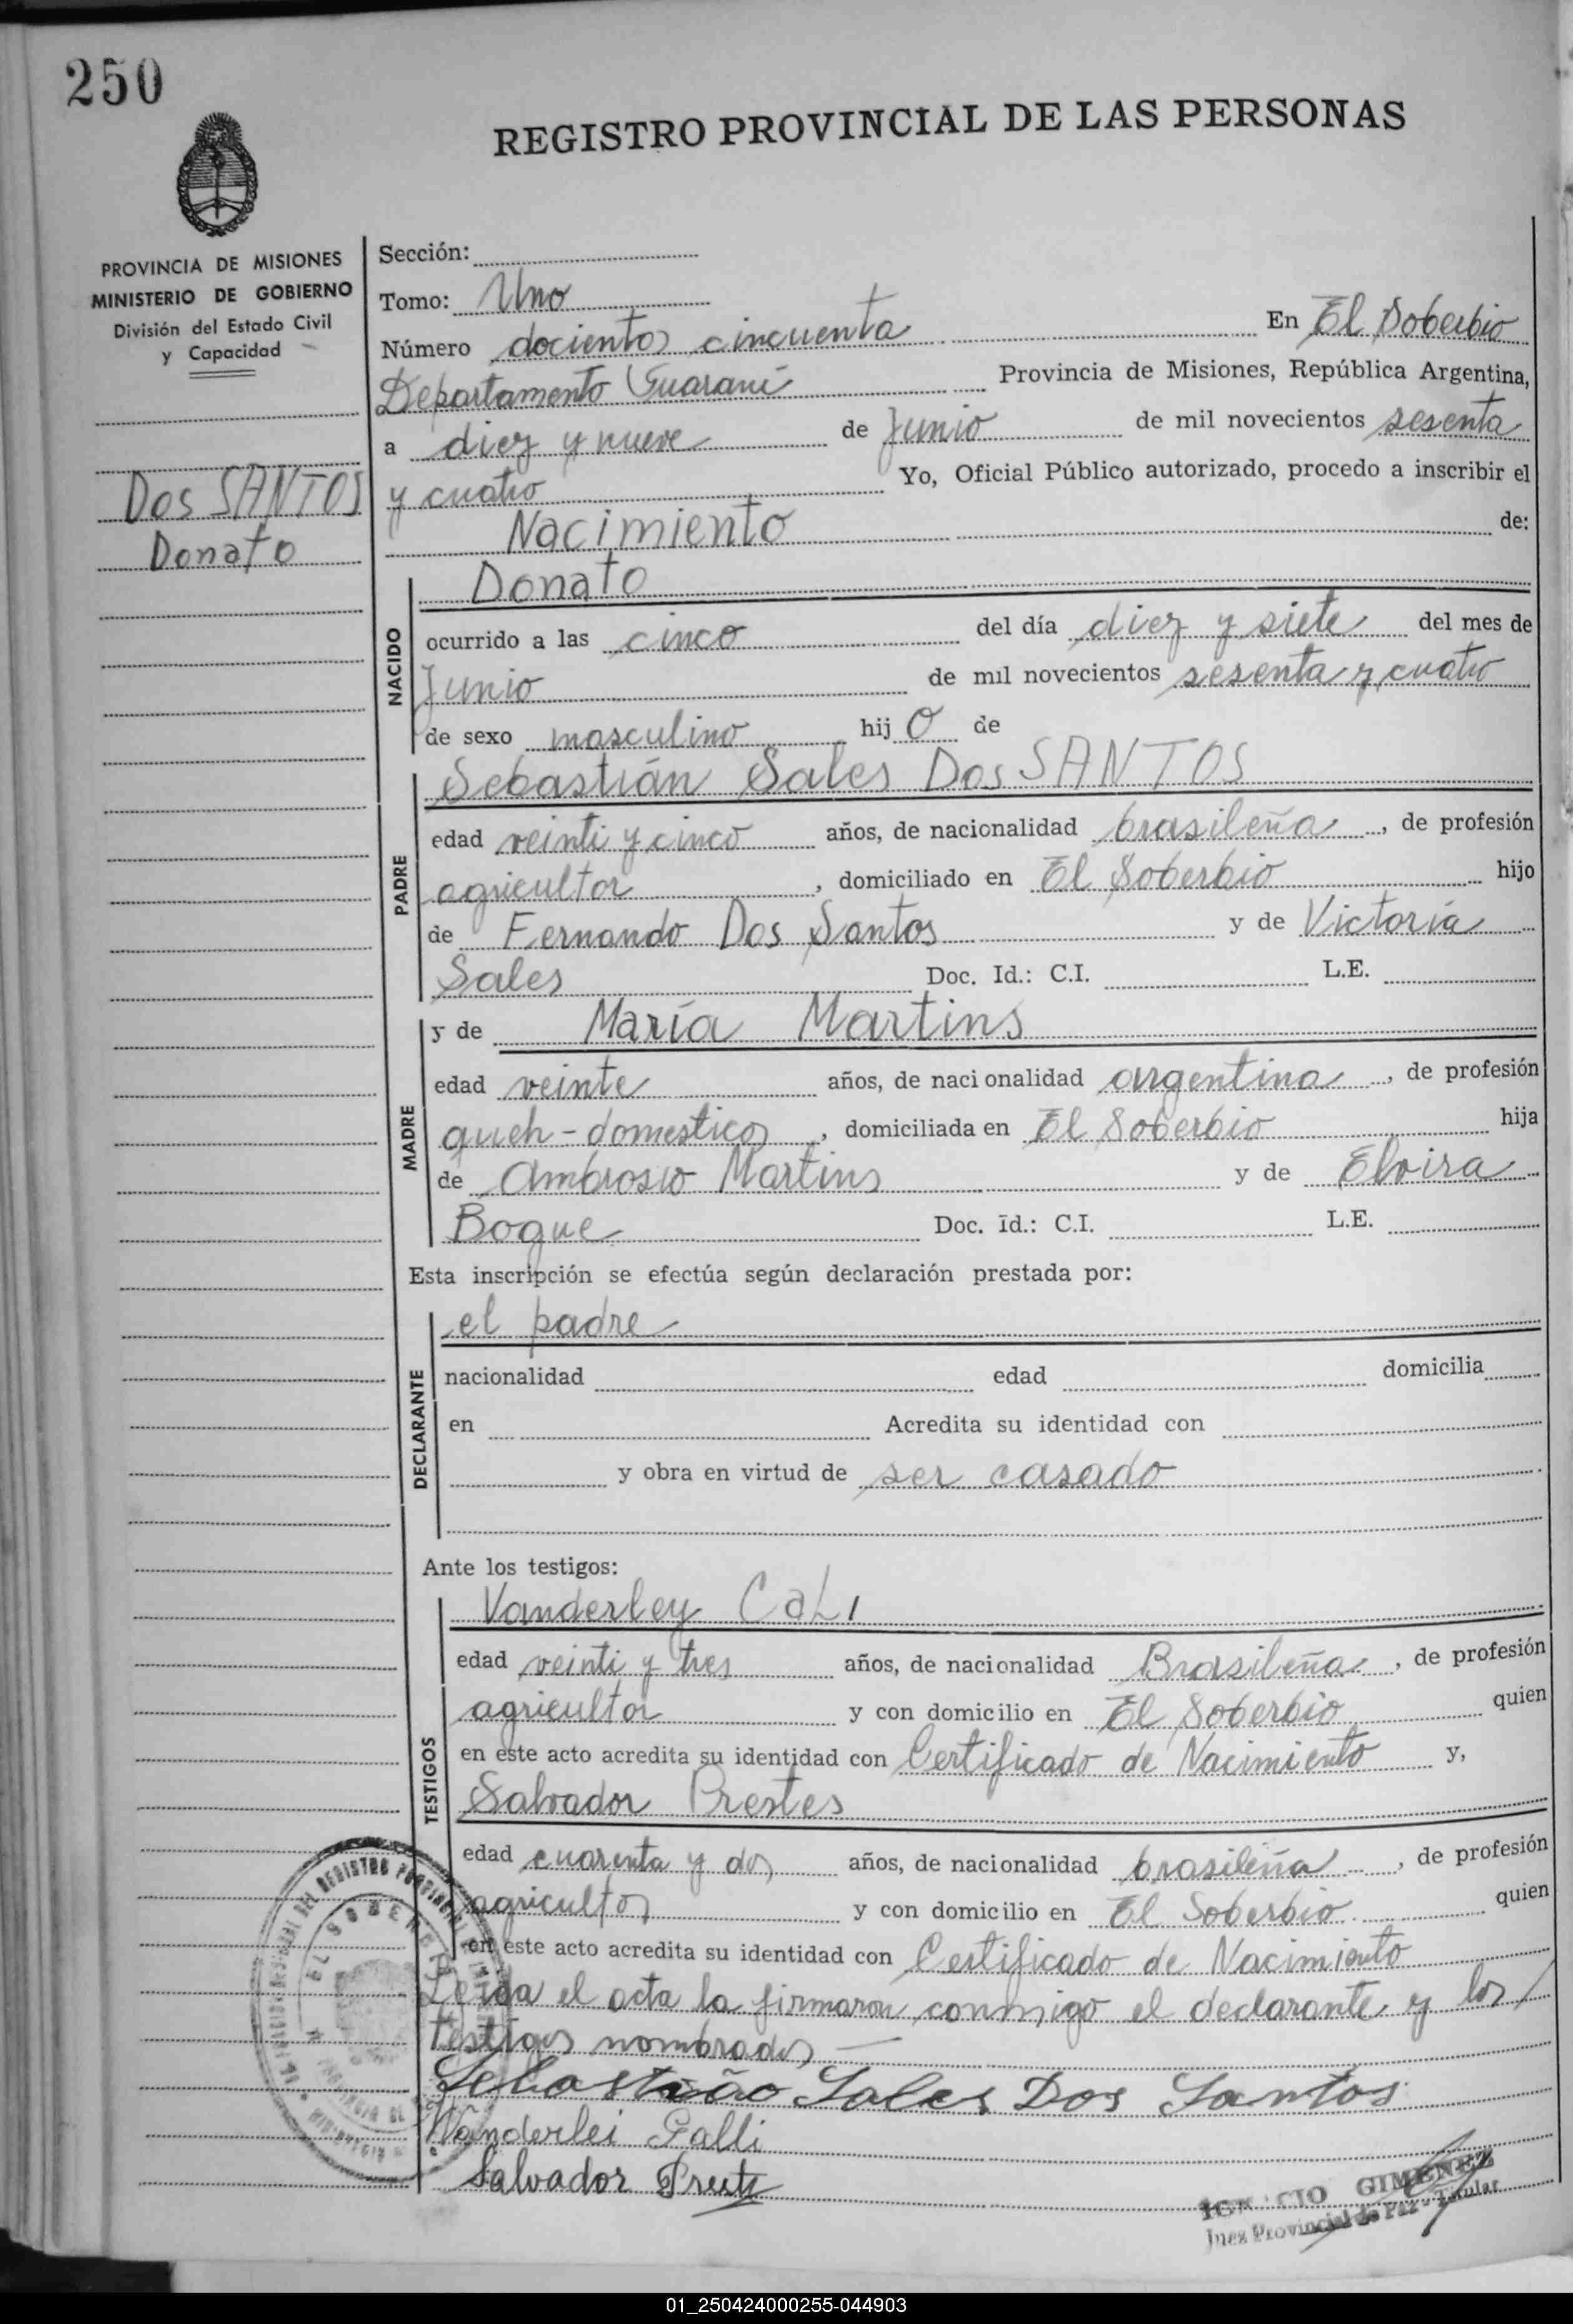 250
REGISTRO PROVINCIAL DE LAS PERSONAS
PROVINCIA DE MISIONES
MINISTERIO DE GOBIERNO
División del Estado Civil
y Capacidad
Dos SANTOS
Donato
Sección:
Tomo: Uno
Número docientos cincuenta En El Soberbio
Departamento Guaraní Provincia de Misiones, República Argentina,
a diez y nueve de Junio de mil novecientos sesenta
y cuatro Yo, Oficial Público autorizado, procedo a inscribir el
Nacimiento de:
NACIDO
Donato
ocurrido a las cinco del día diez y siete del mes de
Junio de mil novecientos sesenta y cuatro
de sexo masculino hijo de
PADRE
Sebastián Sales Dos SANTOS
edad veinti y cinco años, de nacionalidad brasileña, de profesión
agricultor, domiciliado en El Soberbio hijo
de Fernando Dos Santos y de Victoria
Sales Doc. Id.: C.I. L.E.
MADRE
y de María Martins
edad veinte años, de nacionalidad argentina, de profesión
queh-domesticos, domiciliada en El Soberbio hija
de Ambrosio Martins y de Elvira
Boque Doc. Id.: C.I. L.E.
Esta inscripción se efectúa según declaración prestada por:
DECLARANTE
el padre
nacionalidad edad domicilia
en Acredita su identidad con
y obra en virtud de ser casado
Ante los testigos:
TESTIGOS
Vanderley CaLi
edad veinti y tres años, de nacionalidad Brasileña, de profesión
agricultor y con domicilio en El Soberbio quien
en este acto acredita su identidad con Certificado de Nacimiento y,
Salvador Prestes
edad cuarenta y dos años, de nacionalidad brasileña, de profesión
agricultor y con domicilio en El Soberbio quien
en este acto acredita su identidad con Certificado de Nacimiento
Leida el acta la firmaron conmigo el declarante y los
testigos nombrados —
Sebastião Sales Dos Santos
Wanderlei Galli
Salvador
GIMENEZ
Juez Provincial de Paz - Titular
DEL REGISTRO PROVINCIAL
EL SOBERBIO
01_250424000255-044903